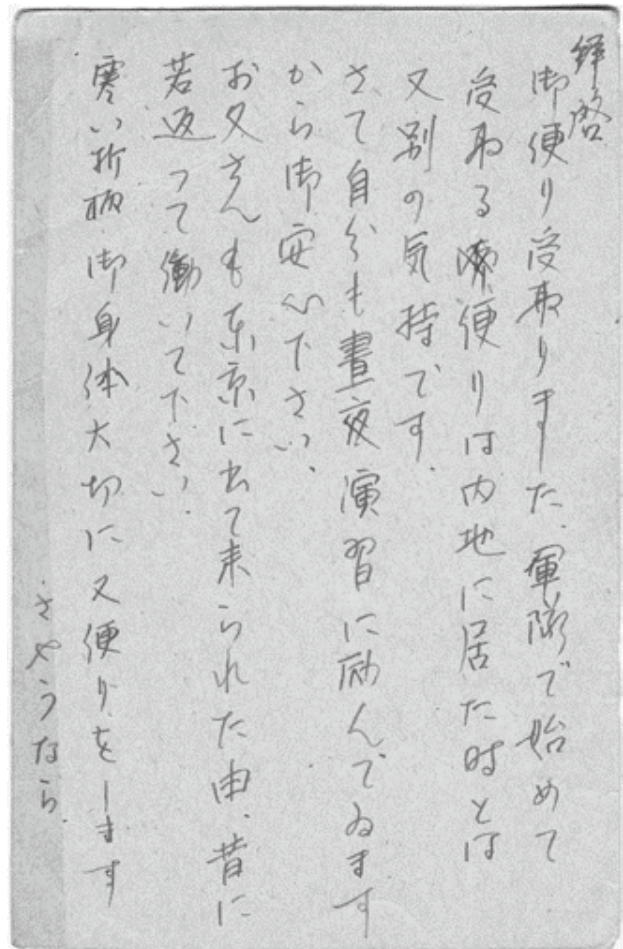 拝啓
御便り受取りました、軍隊で始めて
受取る便りは内地に居た時とは
又別の気持です、
さて自分も晝夜演習に励んでゐます
から御安心下さい、
お父さんも東京に出て来られた由、昔に
若返って働いて下さい、
寒い折柄御身体大切に又便りをします
さやうなら